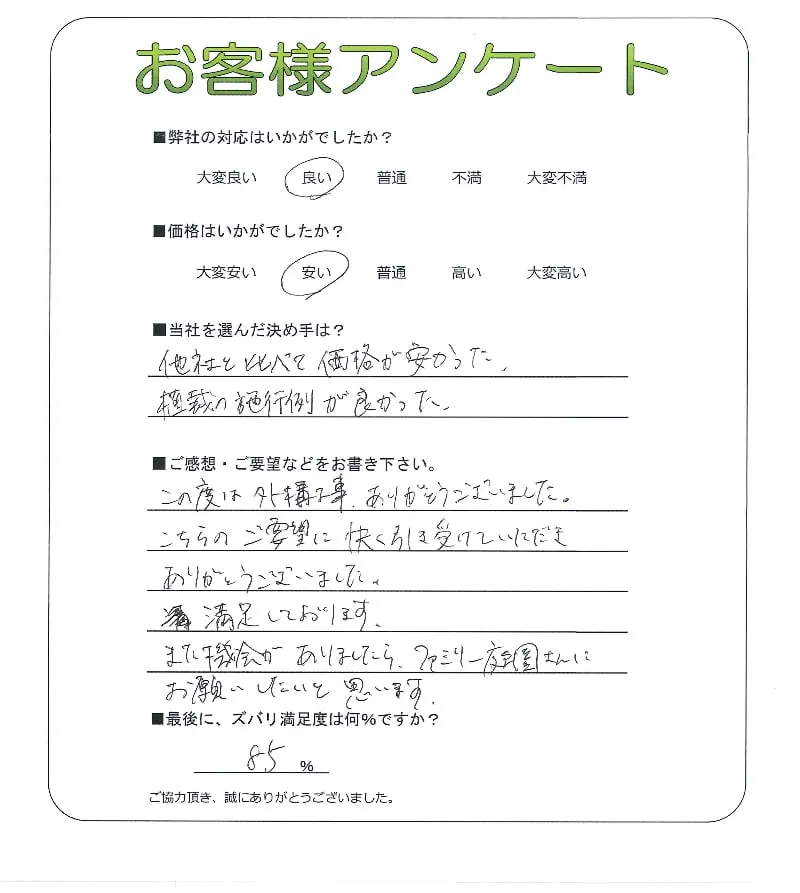 お客様アンケート
■弊社の対応はいかがでしたか？
大変良い 良い 普通 不満 大変不満
■価格はいかがでしたか？
大変安い 安い 普通 高い 大変高い
■当社を選んだ決め手は？
他社と比べて価格が安かった。
植栽の施行例が良かった。
■ご感想・ご要望などをお書き下さい。
この度は外構工事、ありがとうございました。
こちらのご要望に快く引き受けていただき
ありがとうございました。
満足しております。
また機会がありましたら、ファミリー庭園さんに
お願いしたいと思います。
■最後に、ズバリ満足度は何％ですか？
85 %
ご協力頂き、誠にありがとうございました。